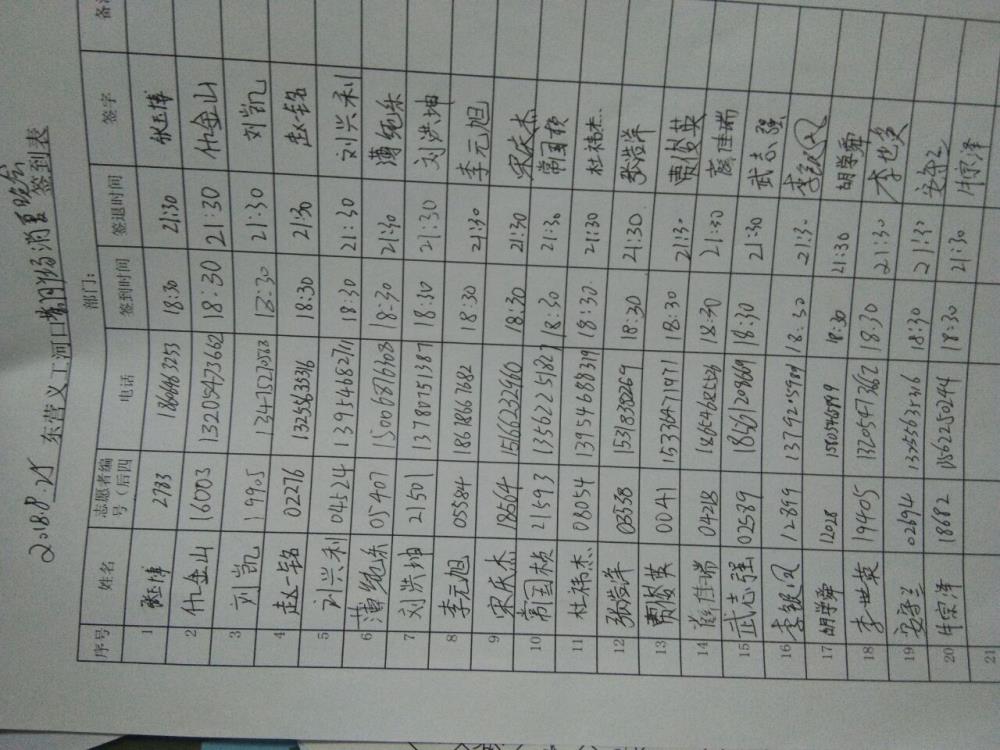 2018.8.25 东营义工河口黄河路消夏晚会签到表
部门:
序号 姓名 志愿者编号(后四 电话 签到时间 签退时间 签字 备注
1 张玉博 2783 18:30 21:30 张玉博
2 仇金山 16003 13205473662 18:30 21:30 仇金山
3 刘凯 19905 18:30 21:30 刘凯
4 赵一铭 02276 18:30 21:30 赵一铭
5 刘兴利 04524 13954682711 18:30 21:30 刘兴利
6 薄纯乐 05407 15006876608 18:30 21:30 薄纯乐
7 刘洪坤 21501 13780751387 18:30 21:30 刘洪坤
8 李元旭 05584 18618667682 18:30 21:30 李元旭
9 宋乐杰 18564 15166232960 18:30 21:30 宋乐杰
10 常国桢 21593 13562225182 18:30 21:30 常国桢
11 杜祎杰 08054 13954688319 18:30 21:30 杜祎杰
12 张浩洋 03538 15318338269 18:30 21:30 张浩洋
13 贾俊英 0041 15336471971 18:30 21:30 贾俊英
14 佳瑞 04218 18:30 21:30 佳瑞
15 武志强 02589 18:30 21:30 武志强
16 李银凤 12899 13792059 18:30 21:30 李银凤
17 胡学舜 12028 18:30 21:30 胡学舜
18 李世英 19405 13205473662 18:30 21:30 李世英
19 安守兰 02694 18:30 21:30 安守兰
20 牛宗泽 18682 18:30 21:30 牛宗泽
21